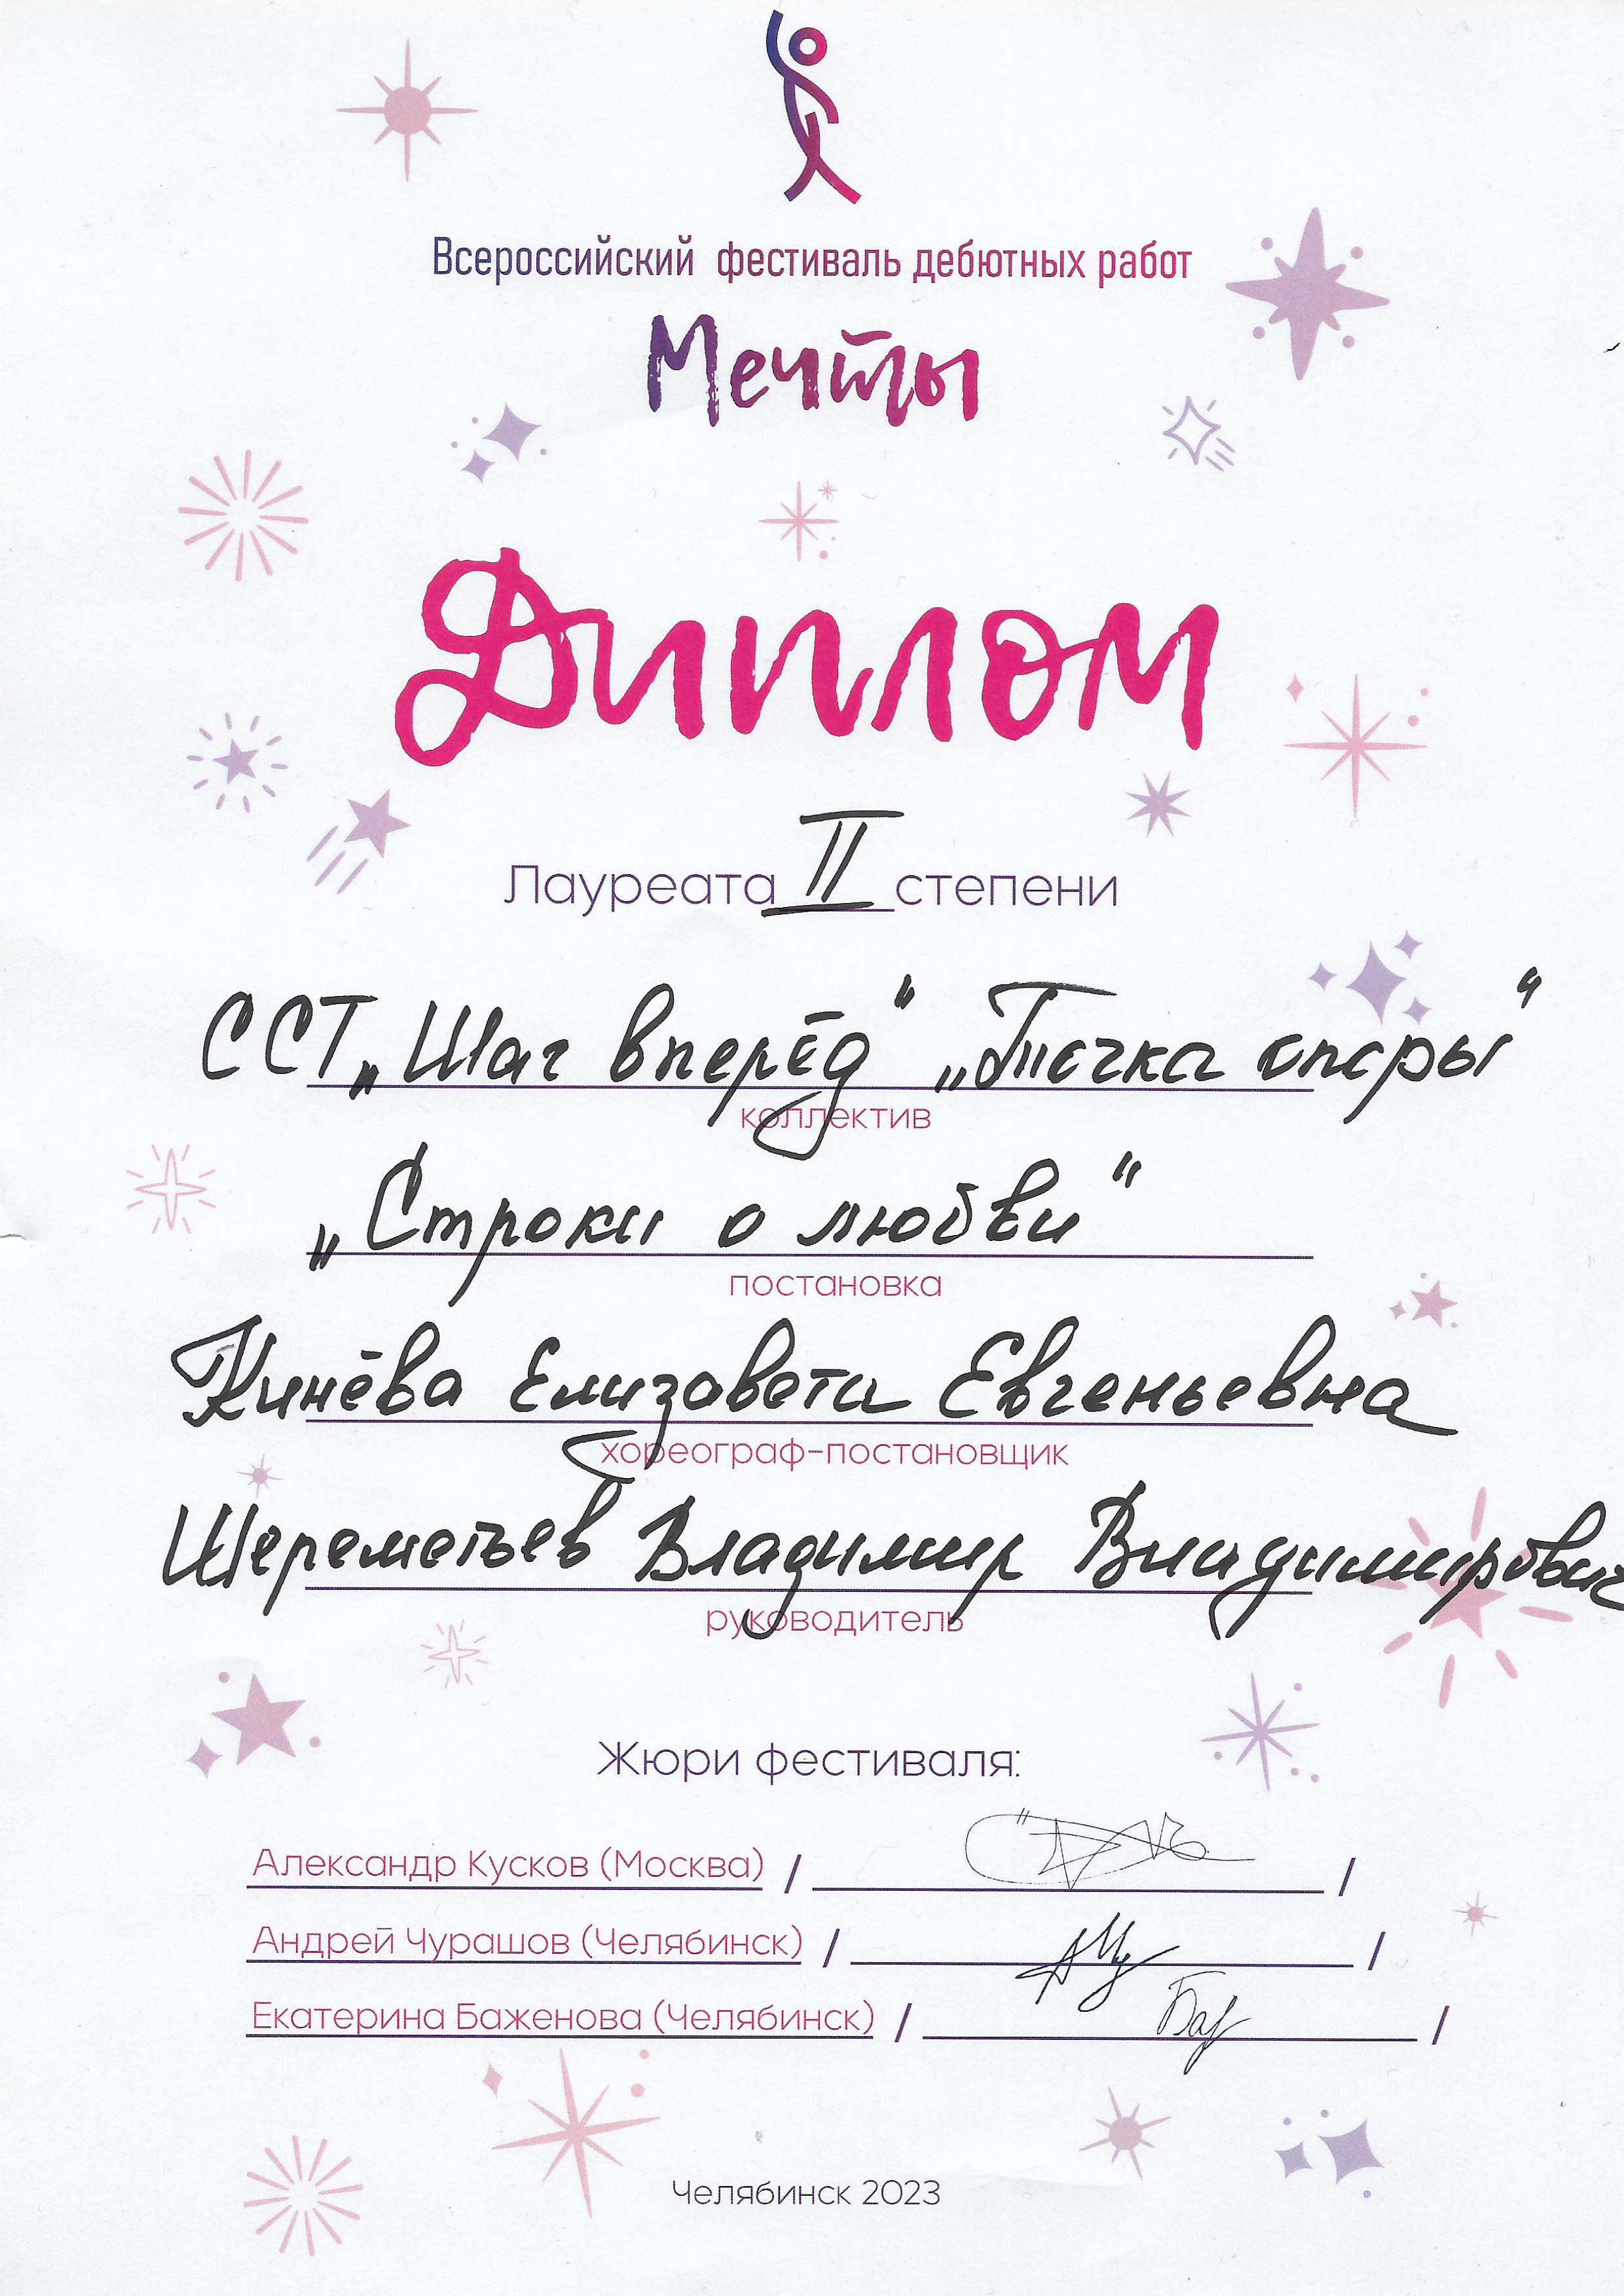 Всероссийский фестиваль дебютных работ
Мечты
Диплом
Лауреата II степени
ССТ „Шаг вперёд“ „Точка опоры“
коллектив
„Строки о любви“
постановка
Кинёва Елизавета Евгеньевна
хореограф-постановщик
Шереметьев Владимир Владимирович
руководитель
Жюри фестиваля:
Александр Кусков (Москва) / /
Андрей Чурашов (Челябинск) / /
Екатерина Баженова (Челябинск) / /
Челябинск 2023